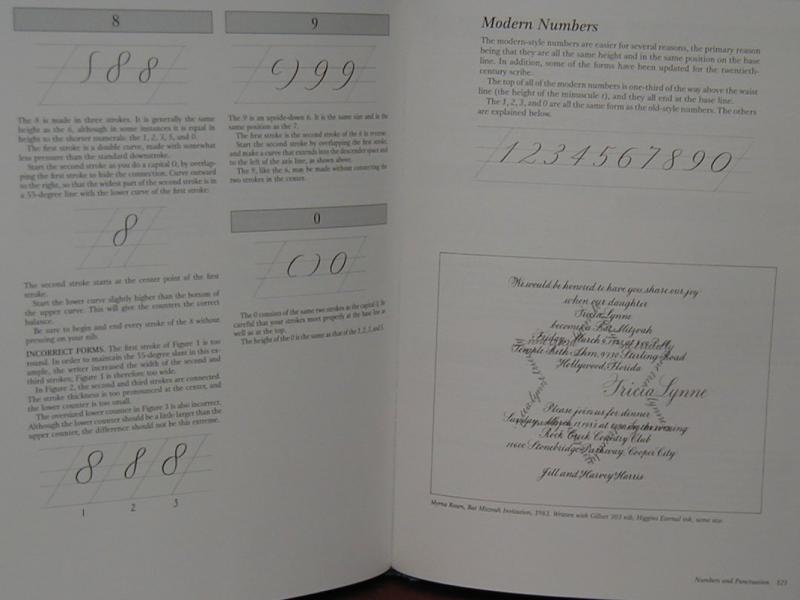 8
8 8
The 8 is made in three strokes. It is generally the same
height as the 6, although in some instances it is equal in
height to the shorter numerals: the 1, 2, 3, 5, and 0.
The first stroke is a double curve, made with somewhat
less pressure than the standard downstroke.
Start the second stroke as you do a capital O, by overlap-
ping the first stroke to hide the connection. Curve outward
to the right, so that the widest part of the second stroke is in
a 55-degree line with the lower curve of the first stroke.
8
The second stroke starts at the center point of the first
stroke.
Start the lower curve slightly higher than the bottom of
the upper curve. This will give the counters the correct
balance.
Be sure to begin and end every stroke of the 8 without
pressing on your nib.
INCORRECT FORMS. The first stroke of Figure 1 is too
round. In order to maintain the 55-degree slant in this ex-
ample, the writer increased the width of the second and
third strokes; Figure 1 is therefore too wide.
In Figure 2, the second and third strokes are connected.
The stroke thickness is too pronounced at the center, and
the lower counter is too small.
The oversized lower counter in Figure 3 is also incorrect.
Although the lower counter should be a little larger than the
upper counter, the difference should not be this extreme.
8 8 8
1 2 3
9
9 9
The 9 is an upside-down 6. It is the same size and in the
same position as the 7.
The first stroke is the second stroke of the 6 in reverse.
Start the second stroke by overlapping the first stroke,
and make a curve that extends into the descender space and
to the left of the axis line, as shown above.
The 9, like the 6, may be made without connecting the
two strokes in the center.
0
0
The 0 consists of the same two strokes as the capital O. Be
careful that your strokes meet properly at the base line as
well as at the top.
The height of the 0 is the same as that of the 1, 2, 3, and 5.
Modern Numbers
The modern-style numbers are easier for several reasons, the primary reason
being that they are all the same height and in the same position on the base
line. In addition, some of the forms have been updated for the twentieth-
century scribe.
The top of all of the modern numbers is one-third of the way above the waist
line (the height of the minuscule t), and they all end at the base line.
The 1, 2, 3, and 0 are all the same form as the old-style numbers. The others
are explained below.
1 2 3 4 5 6 7 8 9 0
We would be honored to have you share our joy
when our daughter
Tricia Lynne
becomes a Bat Mitzvah
Friday, March
Temple Beth Ahm, 9730 Stirling Road
Hollywood, Florida
Tricia Lynne
Please join us for dinner
Sunday, March in the evening
Rock Creek Country Club
11600 Stonebridge Parkway, Cooper City
Jill and Harvey Harris
Myrna Rosen, Bat Mitzvah Invitation, 1983. Written with Gillott 303 nib, Higgins Eternal ink, same size.
Numbers and Punctuation 123